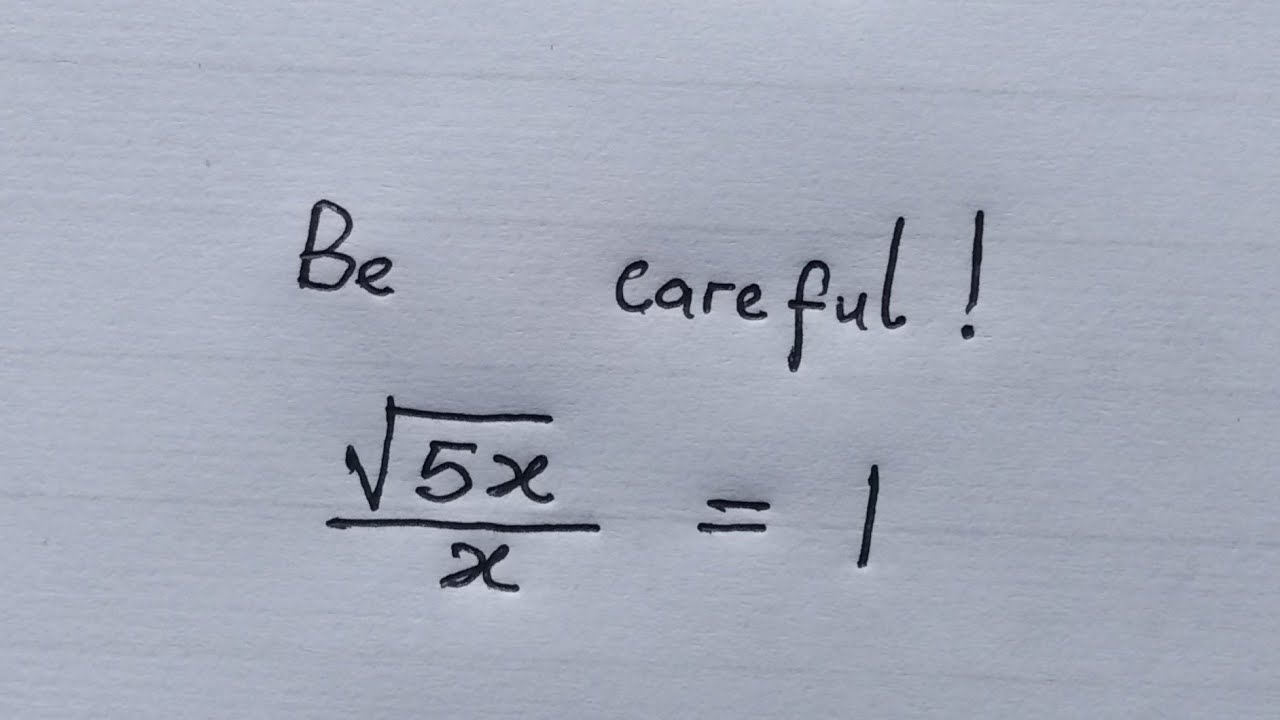 Be careful!
√5x / x = 1